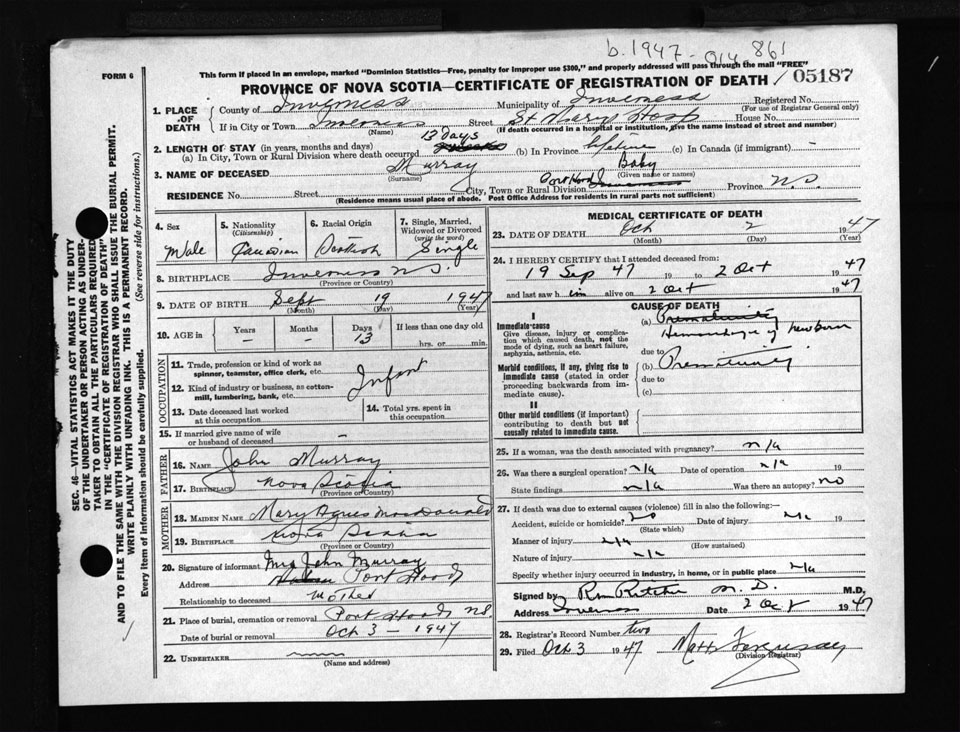 b. 1947 - 014 861
FORM 6
This form if placed in an envelope, marked "Dominion Statistics—Free, penalty for improper use $300," and properly addressed will pass through the mail "FREE"
PROVINCE OF NOVA SCOTIA—CERTIFICATE OF REGISTRATION OF DEATH / 05187
1. PLACE OF DEATH
County of Inverness Municipality of Inverness Registered No.
(For use of Registrar General only)
If in City or Town Inverness Street St Marys Hosp House No.
(Name) (If death occurred in a hospital or institution, give the name instead of street and number)
2. LENGTH OF STAY (in years, months and days) 13 days
(a) In City, Town or Rural Division where death occurred (b) In Province lifetime (c) In Canada (if immigrant) -
3. NAME OF DECEASED Murray Baby
(Surname) (Given name or names)
RESIDENCE No. Street City, Town or Rural Division Port Hood Inverness Province N.S.
(Residence means usual place of abode. Post Office Address for residents in rural parts not sufficient)
4. Sex Male
5. Nationality (Citizenship) Canadian
6. Racial Origin Scottish
7. Single, Married, Widowed or Divorced (write the word) Single
8. BIRTHPLACE Inverness N.S.
(Province or Country)
9. DATE OF BIRTH Sept 19 1947
(Month) (Day) (Year)
10. AGE in Years - Months - Days 13 If less than one day old
hrs. or min.
OCCUPATION
11. Trade, profession or kind of work as spinner, teamster, office clerk, etc.
12. Kind of industry or business, as cotton-mill, lumbering, bank, etc. Infant
13. Date deceased last worked at this occupation
14. Total yrs. spent in this occupation
15. If married give name of wife or husband of deceased -
FATHER
16. NAME John Murray
17. BIRTHPLACE Nova Scotia
(Province or Country)
MOTHER
18. MAIDEN NAME Mary Agnes MacDonald
19. BIRTHPLACE Nova Scotia
(Province or Country)
20. Signature of informant Mrs John Murray
Address Port Hood
Relationship to deceased Mother
21. Place of burial, cremation or removal Port Hood N.S.
Date of burial or removal Oct 3 - 1947
22. UNDERTAKER
(Name and address)
MEDICAL CERTIFICATE OF DEATH
23. DATE OF DEATH Oct 2 1947
(Month) (Day) (Year)
24. I HEREBY CERTIFY that I attended deceased from:
19 Sep 47 19 to 2 Oct 1947
and last saw him alive on 2 Oct 1947
CAUSE OF DEATH
I
Immediate cause
Give disease, injury or complication which caused death, not the mode of dying, such as heart failure, asphyxia, asthenia, etc.
(a) Prematurity
Hemorrhage of newborn
due to
Morbid conditions, if any, giving rise to immediate cause (stated in order proceeding backwards from immediate cause).
(b) Prematurity
due to
(c)
II
Other morbid conditions (if important) contributing to death but not causally related to immediate cause.
25. If a woman, was the death associated with pregnancy? n/a
26. Was there a surgical operation? n/a Date of operation n/a 19
State findings n/a Was there an autopsy? no
27. If death was due to external causes (violence) fill in also the following:—
Accident, suicide or homicide? no Date of injury n/a 19
(State which)
Manner of injury n/a
(How sustained)
Nature of injury n/a
Specify whether injury occurred in industry, in home, or in public place n/a
Signed by Ritchie M.D. M.D.
Address Inverness Date 2 Oct 1947
28. Registrar's Record Number two
29. Filed Oct 3 1947
(Division Registrar)
SEC. 46—VITAL STATISTICS ACT MAKES IT THE DUTY
OF THE UNDERTAKER OR PERSON ACTING AS UNDER-
TAKER TO OBTAIN ALL THE PARTICULARS REQUIRED
IN THE "CERTIFICATE OF REGISTRATION OF DEATH"
AND TO FILE THE SAME WITH THE DIVISION REGISTRAR WHO SHALL ISSUE THE BURIAL PERMIT.
WRITE PLAINLY WITH UNFADING INK. THIS IS A PERMANENT RECORD.
Every item of information should be carefully supplied. (See reverse side for instructions.)